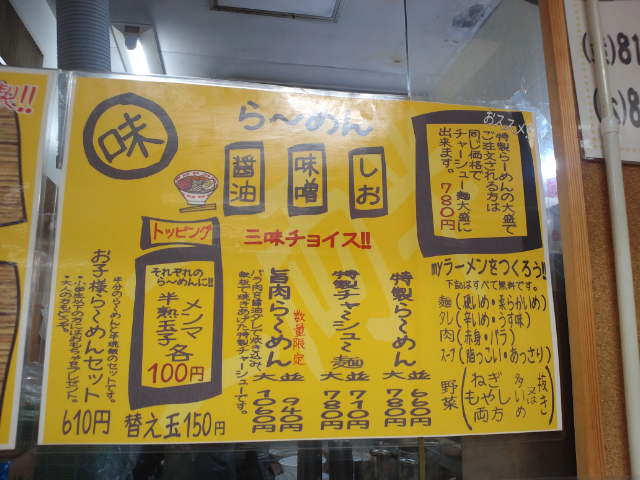 味
ら〜めん
醤油
味噌
しお
三味チョイス!!
おススメ!
特製ら〜めんの大盛で
ご注文される方は
同じ価格で
チャーシュー麺大盛に
出来ます。
780円
myラーメンをつくろう!!
下記はすべて無料です。
麺(硬いめ・柔らかいめ)
タレ(辛いめ・うす味)
肉(赤身・バラ)
スープ(脂っこい・あっさり)
野菜(ねぎ もやし 両方 多いめ 又は 抜き)
特製ら〜めん
並 660円
大 780円
特製チャーシュー麺
並 710円
大 780円
数量限定
旨肉ら〜めん
並 940円
大 1060円
バラ肉を醤油ダレで炊き込み、
焼きあげた特製チャーシューです。
トッピング
それぞれの
ら〜めんに!!
メンマ
半熟玉子
各
100円
替え玉150円
お子様ら〜めんセット
半分のら〜めんと半焼飯のセットです。
・小学生以下の方にはおもちゃをプレゼント。
・大人の方もどうぞ。
610円
製!!
81
8